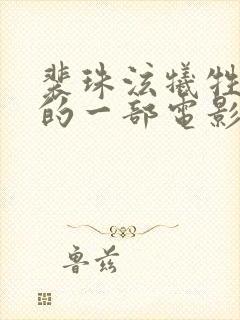 裴珠泫犧牲
的一部電影
鲁兹